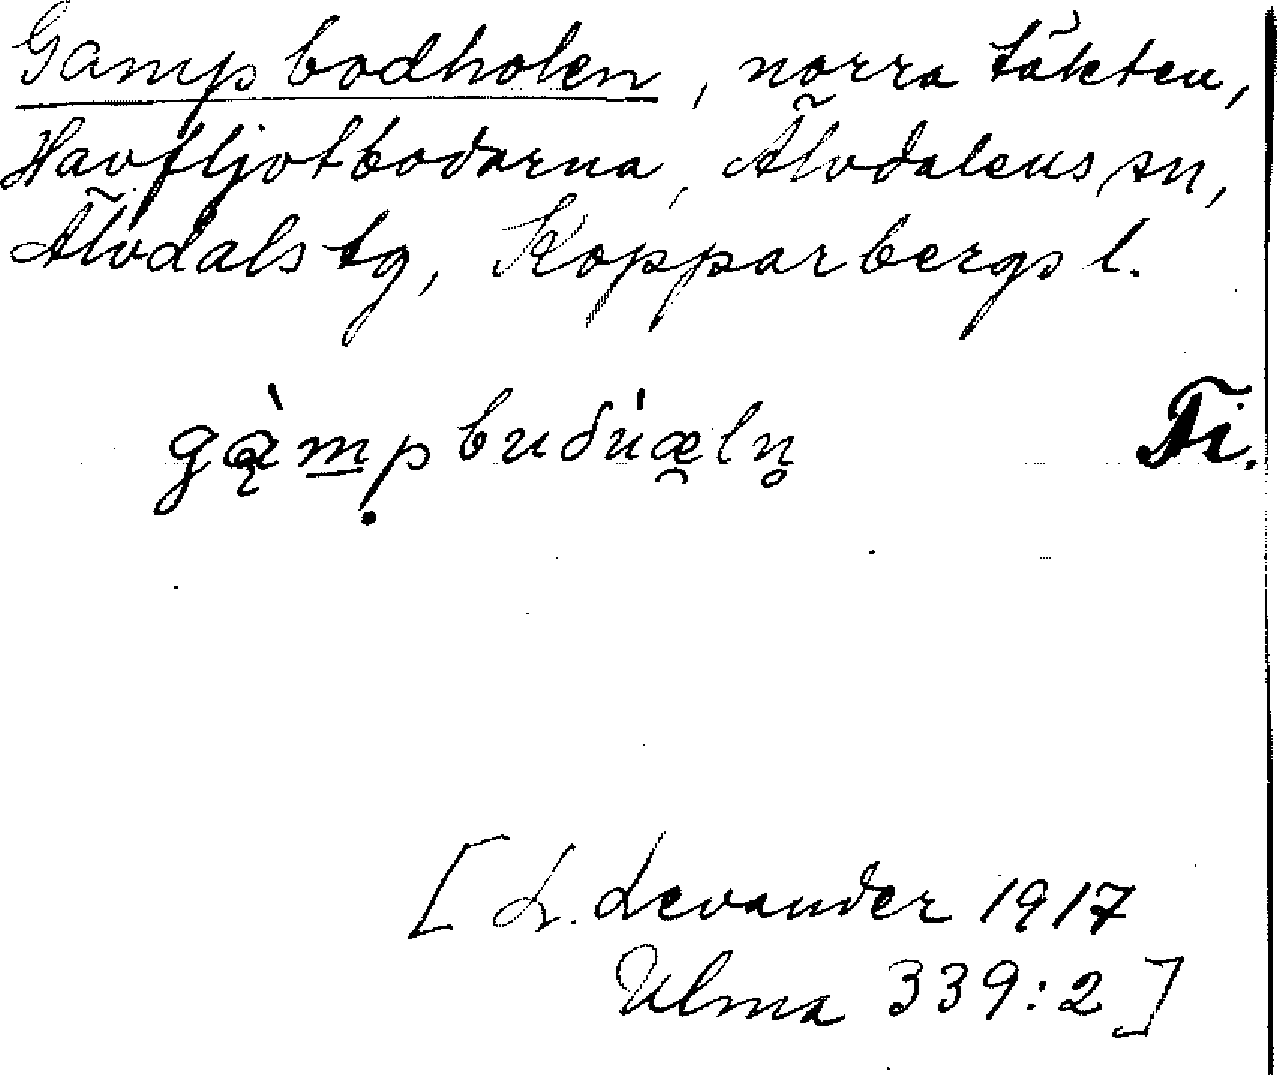 Gampbodholen, norra täkten,
Havfljotbodarna, Älvdalens sn,
Älvdals tg, Kopparbergs l.
gą̀m̲p̣buðu̍æ̯ln̥ Ti.
[L. Levander 1917
Ulma 339:2]